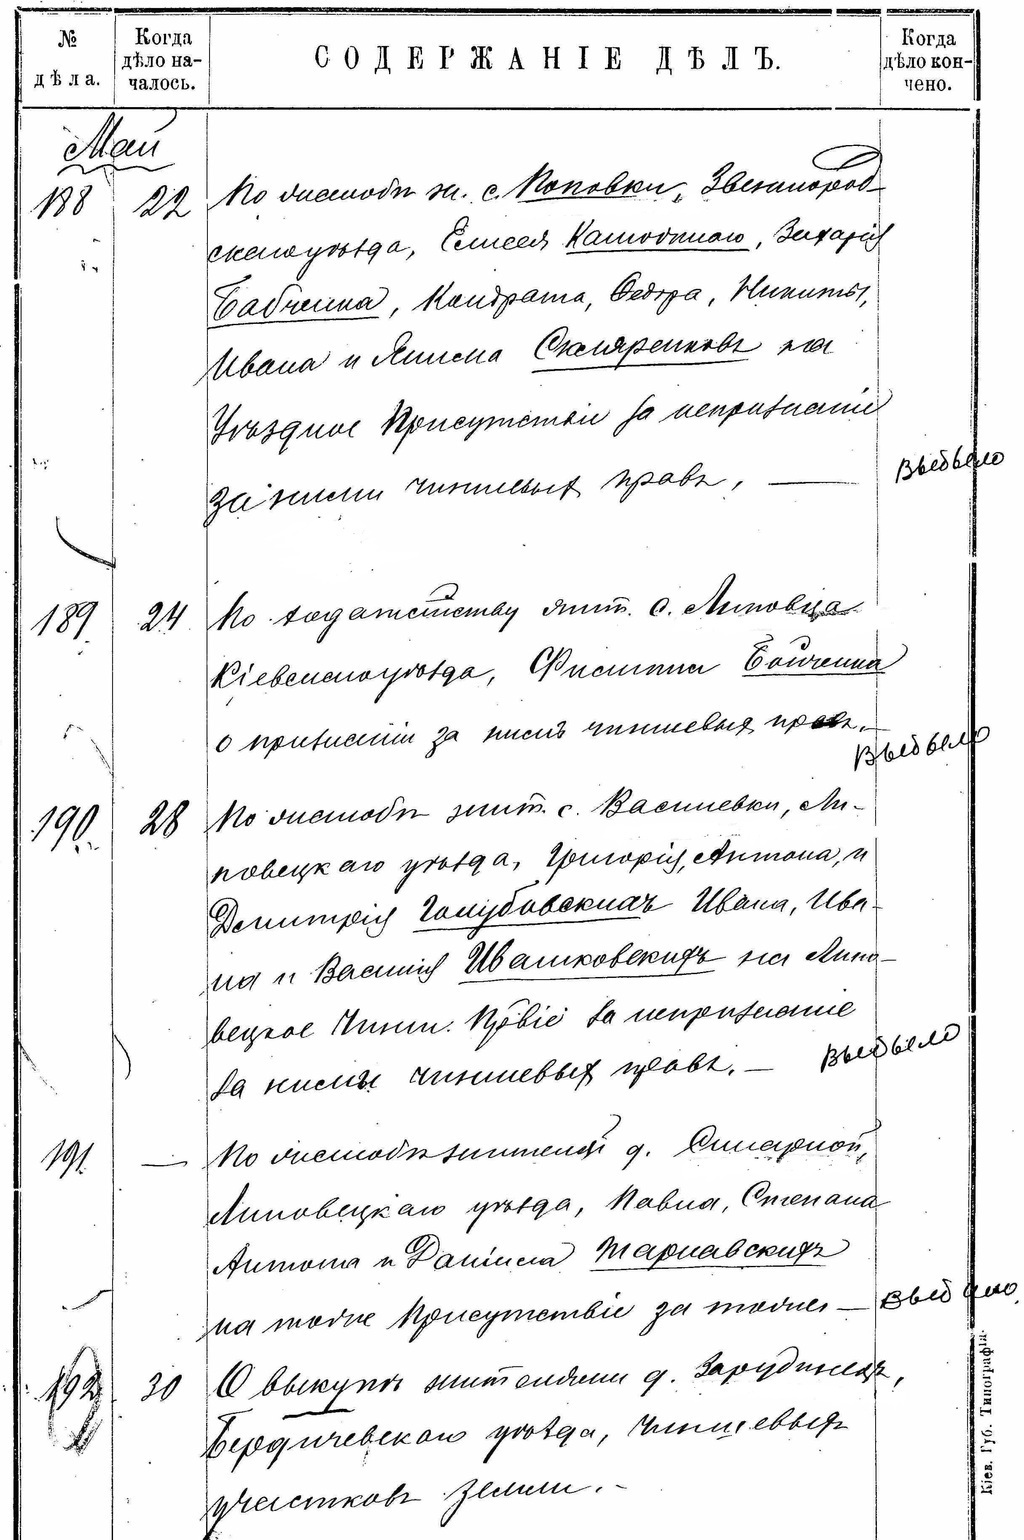 № дѣла.
Когда дѣло началось.
СОДЕРЖАНІЕ ДѢЛЪ.
Когда дѣло кончено.
Май
188 22 По жалобѣ жит. с. Поповки, Звенигород-
скаго уѣзда, Елисея Каторжного, Захарія
Бабченка, Кондрата, Федора, Никиты,
Ивана и Якима Скляренковъ на
Уѣздное Присутствіе за непризнаніе
за ними чиншевыхъ правъ,
Выбыло
189 24 По ходатайству жит. с. Липовца
Кіевскаго уѣзда, Филиппа Бойченка
о признаніи за нимъ чиншевыхъ правъ.
Выбыло
190 28 По жалобѣ жит. с. Василевки, Ли-
повецкаго уѣзда, Григорія, Антона, и
Дмитрія Голубовскихъ Ивана, Ива-
на и Василія Ивашковскихъ на Липо-
вецкое Чинш. Прѣвіе за непризнаніе
за ними чиншевыхъ правъ. —
Выбыло
191 — По жалобѣ жителей д. Сиварной,
Липовецкаго уѣзда, Павла, Степана
Антона и Даніила Тарнавскихъ
на тоже Присутствіе за тоже —
Выбыло
192 30 О выкупѣ жителями д. Зарудинецъ,
Бердичевскаго уѣзда, чиншевыхъ
участковъ земли. —
Кіев. Губ. Типографія.